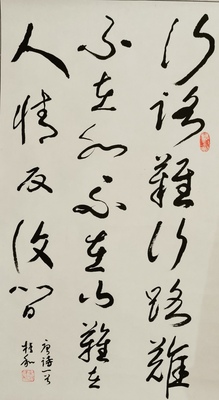 行路難行路難
不在水不在山難在
人情反復間
唐詩一首